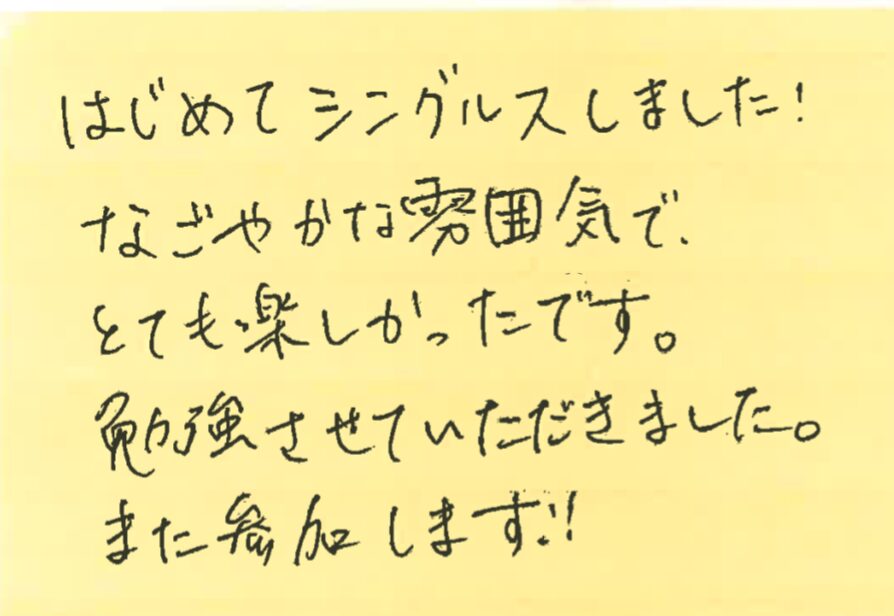 はじめてシングルスしました!
なごやかな雰囲気で、
とても楽しかったです。
勉強させていただきました。
また参加します!!